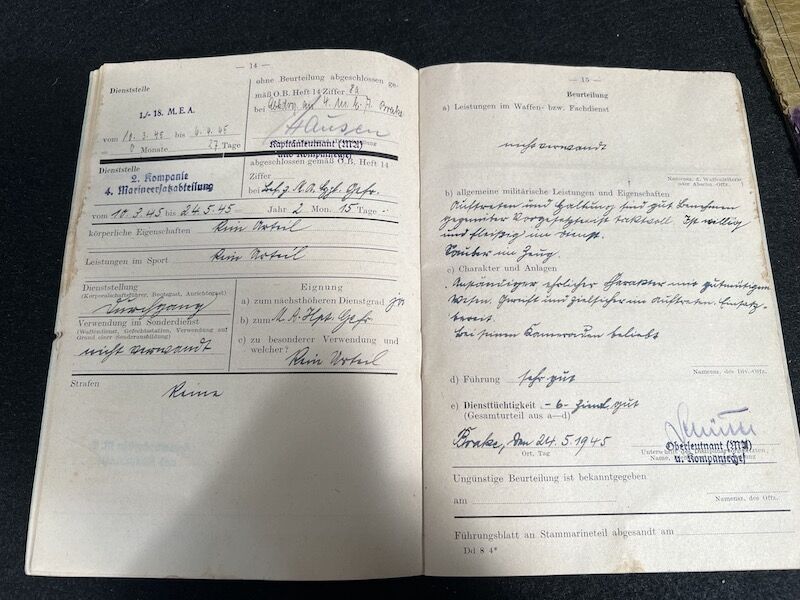 — 14 —
Dienststelle
1./- 18. M. E. A.
vom 10. 3. 45 bis 6. 4. 45
0 Monate 27 Tage
ohne Beurteilung abgeschlossen ge-
mäß O.B. Heft 14 Ziffer 8a
bei 4. M. E. A. Brake
Hausen
Kapitänleutnant (MA)
und Kompaniechef
Dienststelle
2. Kompanie
4. Marineersatzabteilung
abgeschlossen gemäß O.B. Heft 14
Ziffer
bei Gefr.
vom 10.3.45 bis 24.5.45 Jahr 2 Mon. 15 Tage
körperliche Eigenschaften kein Urteil
Leistungen im Sport kein Urteil
Dienststellung
(Korporalschaftsführer, Bootsgast, Anrichtegast)
Durchgang
Verwendung im Sonderdienst
(Waffendienst, Gefechtsstation, Verwendung auf
Grund einer Sonderausbildung)
nicht verwandt
Eignung
a) zum nächsthöheren Dienstgrad ja
b) zum M. A. Hpt. Gefr.
c) zu besonderer Verwendung und
welcher? Kein Urteil
Strafen
Keine
— 15 —
Beurteilung
a) Leistungen im Waffen- bzw. Fachdienst
nicht verwandt
Namensz. d. Waffenleiters
oder Abschn. Offz.
b) allgemeine militärische Leistungen und Eigenschaften
Auftreten und Haltung sind gut Benehmen
gegenüber Vorgesetzten ist taktvoll. Ist willig
und fleißig im Dienst.
Sauber im Zeug.
c) Charakter und Anlagen
Anständiger ehrlicher Charakter mit gutmütigem
Wesen. Gereift und zielsicher im Auftreten. Einsatz-
bereit.
Bei seinen Kameraden beliebt
Namensz. des Div.-Offz.
d) Führung sehr gut
e) Diensttüchtigkeit - 6 - gut
(Gesamturteil aus a—d)
Brake, den 24.5.1945
Ort, Tag
Oberleutnant (MA)
u. Kompaniechef
Ungünstige Beurteilung ist bekanntgegeben
am
Namensz. des Offz.
Führungsblatt an Stammarineteil abgesandt am
Dd 8 4*